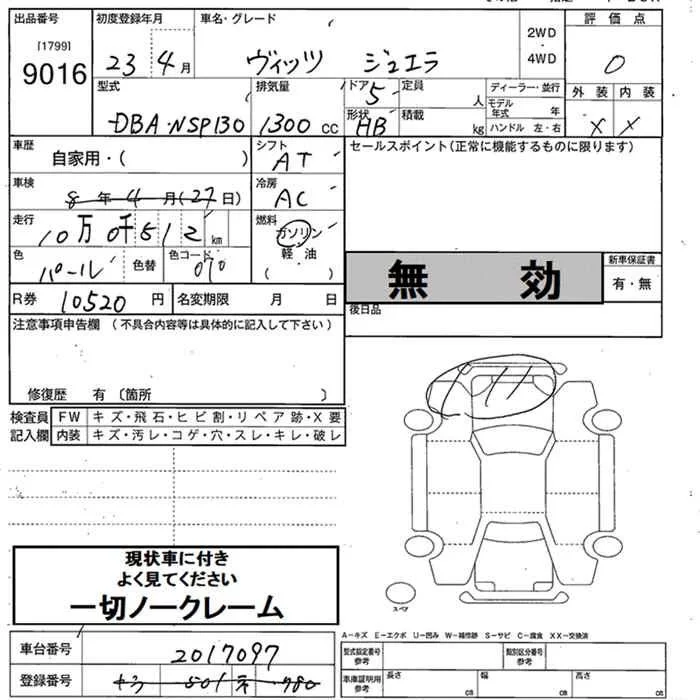 出品番号 初度登録年月 車名・グレード 評価点
[1799]
9016
23 4月 ヴィッツ ジュエラ 2WD・4WD 0
型式 排気量 ドア 定員 ディーラー・並行 外装 内装
DBA・NSP130 1300cc 5 人 モデル年式 年 X X
形状 積載 ハンドル 左・右
HB kg
車歴 シフト セールスポイント(正常に機能するものに限ります)
自家用・( ) AT
車検 冷房
8年4月(27日) AC
走行 燃料
10万0千512km ガソリン
色 色替 色コード 軽油
パール 070 ( )
無効 新車保証書
有・無
R券 10520円 名変期限 月 日 後日品
注意事項申告欄 (不具合内容等は具体的に記入して下さい)
修復歴 有〔箇所 〕
検査員 FW キズ・飛石・ヒビ割・リペア跡・X要
記入欄 内装 キズ・汚レ・コゲ・穴・スレ・キレ・破レ
現状車に付き
よく見てください
一切ノークレーム
スペア
A−キズ E−エクボ U−凹み W−補修跡 S−サビ C−腐食 XX−交換済
車台番号 2017097
登録番号
型式指定番号 参考 類別区分番号 参考
車庫証明用 参考 長さ cm 幅 cm 高さ cm